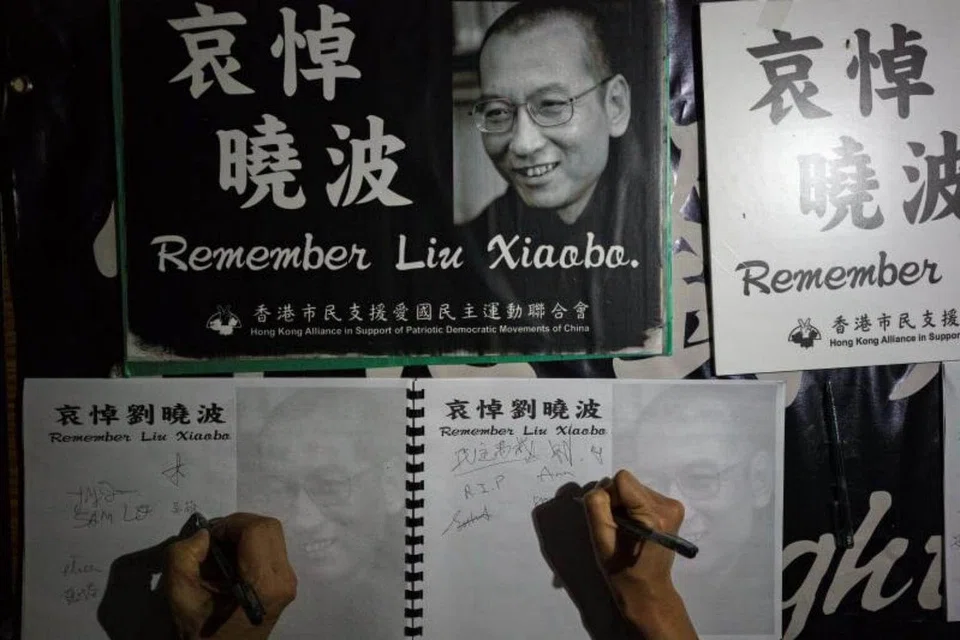 哀悼
曉波
Remember Liu Xiaobo.
香港市民支援愛國民主運動聯合會
Hong Kong Alliance in Support of Patriotic Democratic Movements of China
哀悼
曉波
Remember
香港市民支援
Hong Kong Alliance in Suppor
哀悼劉曉波
Remember Liu Xiaobo
SAM
哀悼劉曉波
Remember Liu Xiaobo
R.I.P
Ann